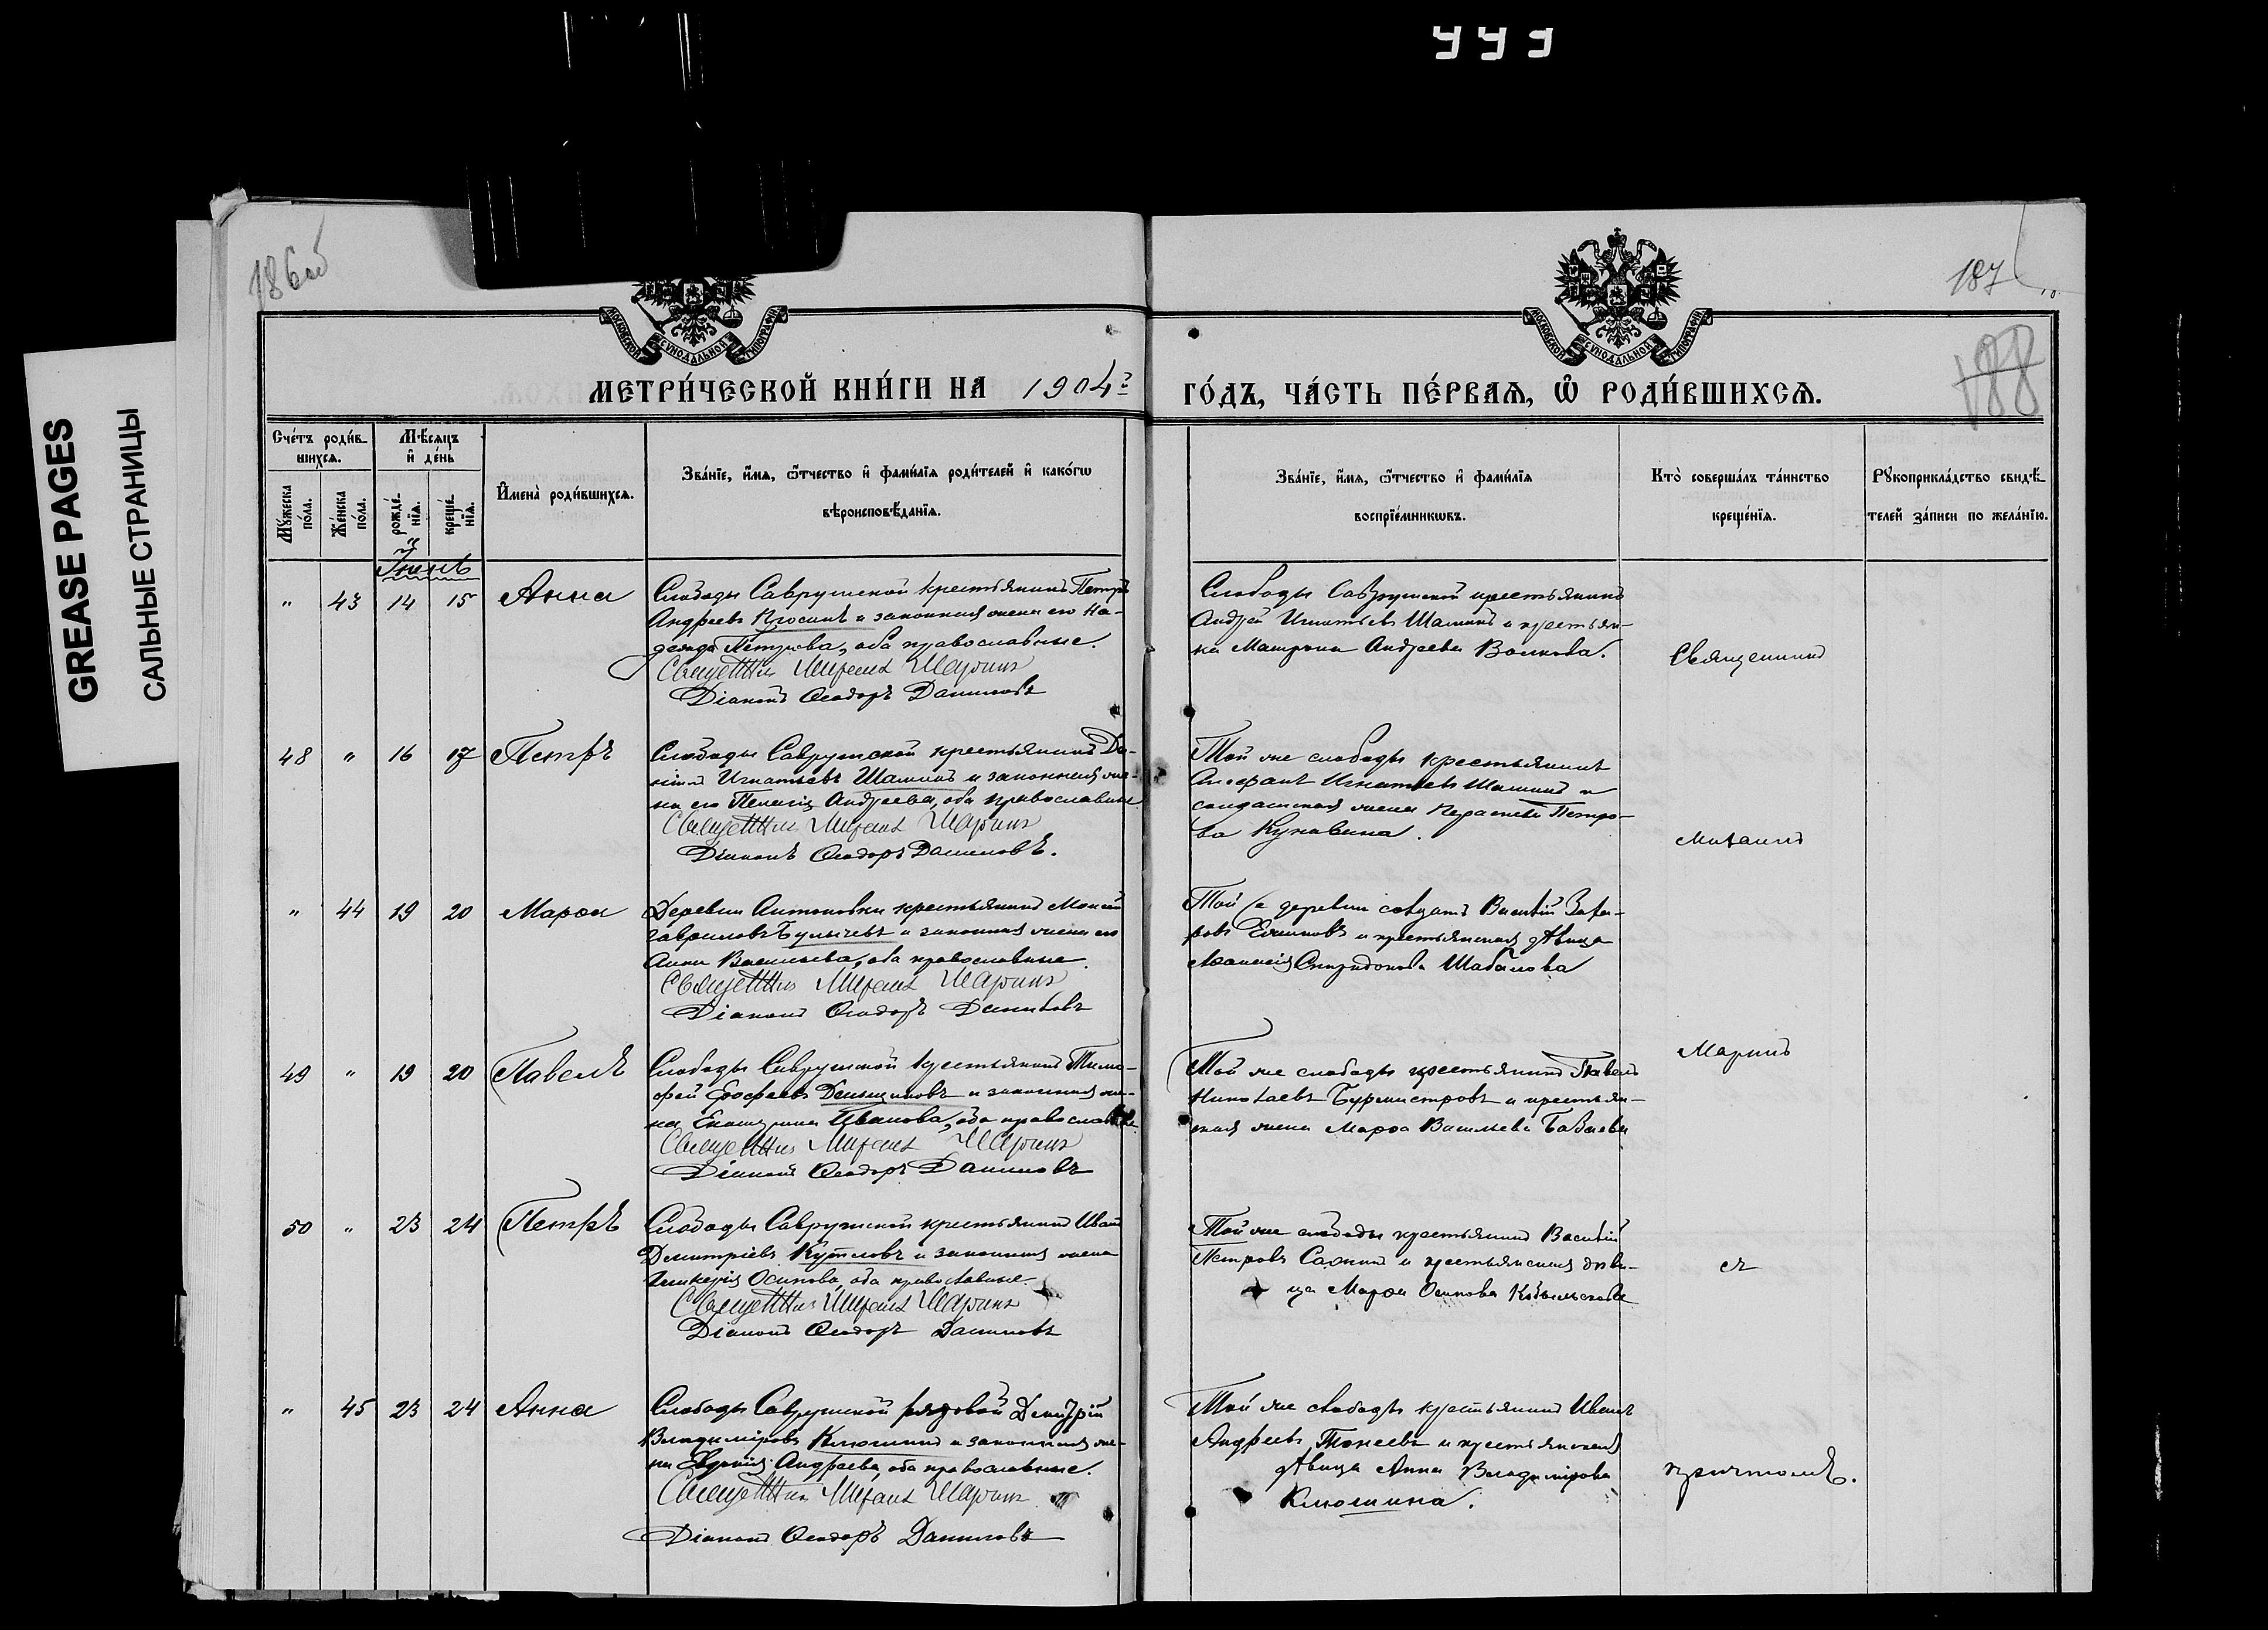 GREASE PAGES
САЛЬНЫЕ СТРАНИЦЫ
186об
187
188
МОСКОВСКОЙ СѴНОДАЛЬНОЙ ТИПОГРАФІИ
МОСКОВСКОЙ СѴНОДАЛЬНОЙ ТИПОГРАФІИ
МЕТРИ́ЧЕСКОЙ КНИ́ГИ НА 1904 ГО́ДЪ, ЧА́СТЬ ПЕ́РВАѦ, Ѡ РОДИ́ВШИХСѦ.
Сче́тъ роди́вшихсѧ.
Мѣ́сѧцъ и де́нь
Мꙋ́жеска по́ла.
Же́нска по́ла.
рожде́нїѧ.
креще́нїѧ.
И҆мена̀ роди́вшихсѧ.
Зва́нїе, и҆́мѧ, ѻ҆́тчество и҆ фами́лїѧ роди́телей и҆ како́гѡ
вѣроисповѣ́данїѧ.
Зва́нїе, и҆́мѧ, ѻ҆́тчество и҆ фами́лїѧ
воспрїе́мникѡвъ.
Кто̀ соверша́лъ та́инство
креще́нїѧ.
Рꙋкоприкла́дство свидѣ́телей за́писи по жела́нїю.
Іюнь
" 43 14 15 Анна
Слободы Саврушской крестьянинъ Петръ
Андреевъ и законная жена его На-
дежда Петрова, оба православные.
Священникъ Михаилъ Маринъ
Діаконъ Ѳеодоръ Даниловъ
Слободы Саврушской крестьянинъ
Андрей Игнатьевъ Шашинъ и крестьян-
ка Матрона Андреева Волкова.
Священникъ
48 " 16 17 Петръ
Слободы Саврушской крестьянинъ Да-
ніилъ Игнатьевъ Шашинъ и законная же-
на его Пелагія Андреева, оба православные
Священникъ Михаилъ Маринъ
Діаконъ Ѳеодоръ Даниловъ.
Той же слободы крестьянинъ
Игнатьевъ Шашинъ и
солдатская жена Петро-
ва Кунавина.
Михаилъ
" 44 19 20 Марѳа
Деревни Антоновки крестьянинъ Моисей
Гавриловъ Булычевъ и законная жена его
Анна Васильева, оба православные.
Священникъ Михаилъ Маринъ
Діаконъ Ѳеодоръ Даниловъ
Той же деревни солдатъ Василій Заха-
ровъ и крестьянская дѣвица
Аѳанасія Спиридонова Шабалова
Маринъ
49 " 19 20 Павелъ
Слободы Саврушской крестьянинъ Тимо-
фей Ерофеевъ Деньщиковъ и законная же-
на Екатерина Иванова, оба православные
Священникъ Михаилъ Маринъ
Діаконъ Ѳеодоръ Даниловъ
Той же слободы крестьянинъ Павелъ
Николаевъ Бурмистровъ и крестьян-
ская жена Марѳа Васильева
50 " 23 24 Петръ
Слободы Саврушской крестьянинъ Иванъ
Димитріевъ и законная жена
Гликерія Осипова, оба православные.
Священникъ Михаилъ Маринъ
Діаконъ Ѳеодоръ Даниловъ
Той же слободы крестьянинъ Василій
Петровъ и крестьянская дѣви-
ца Марѳа Осипова
съ
" 45 23 24 Анна
Слободы Саврушской рядовой Димитрій
Владиміровъ Клюшинъ и законная же-
на Евдокія Андреева, оба православные.
Священникъ Михаилъ Маринъ
Діаконъ Ѳеодоръ Даниловъ
Той же слободы крестьянинъ Иванъ
Андреевъ Токеевъ и крестьянская
дѣвица Анна Владимірова
Клюшина.
причтомъ.